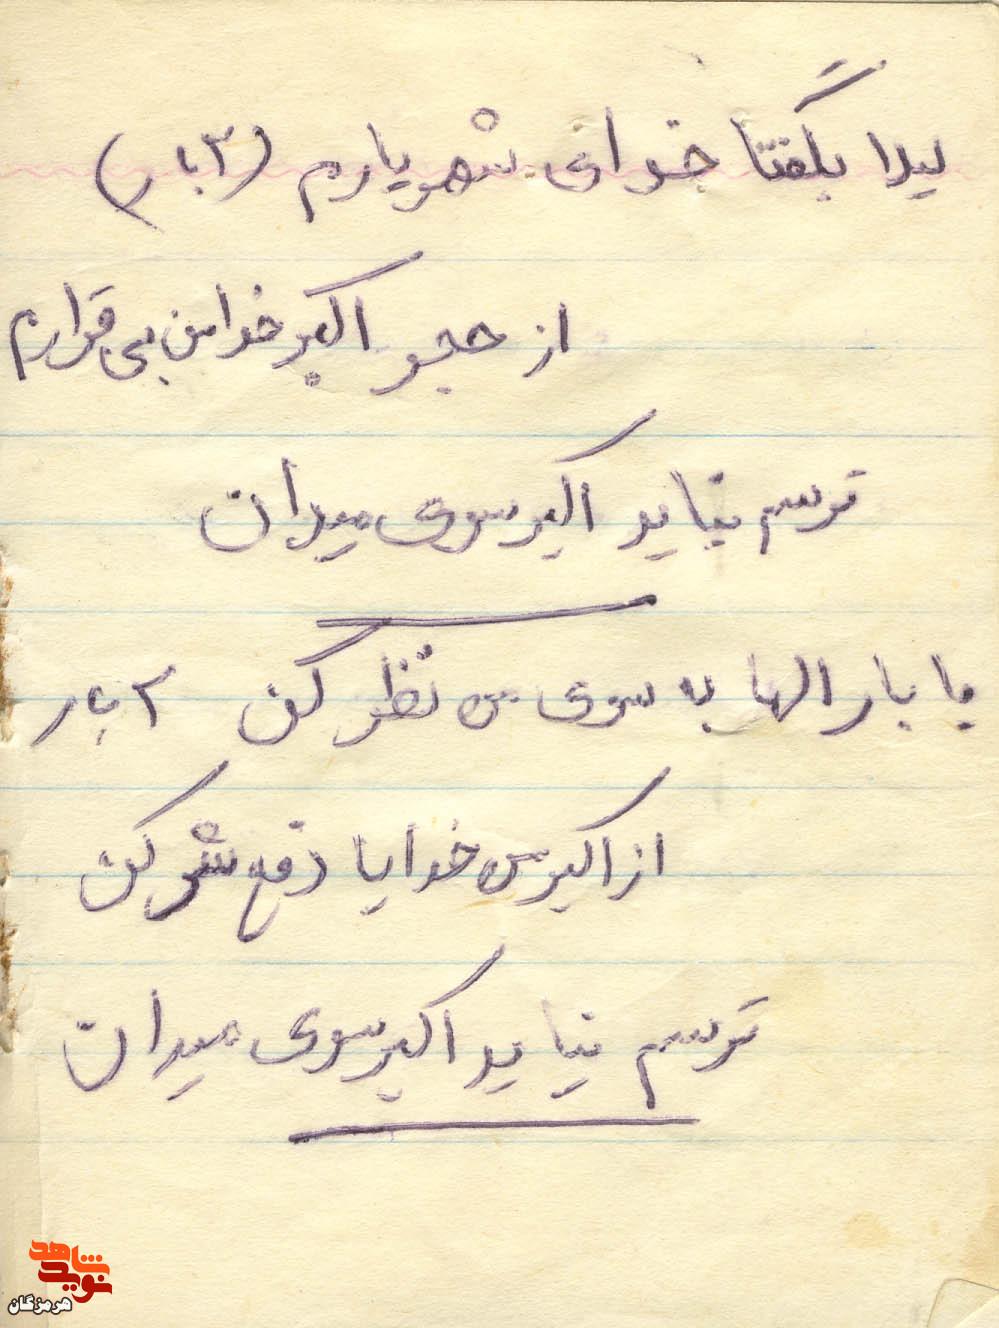 لیلا بگفتا خدای شهریارم (۲ بار)
از هجر اکبر خدا من بی قرارم
ترسم نیاید اکبر سوی میدان
یا بار الها به سوی من نظر کن ۲ بار
از اکبر من خدایا دفع شر کن
ترسم نیاید اکبر سوی میدان
نوید شاهد
هرمزگان